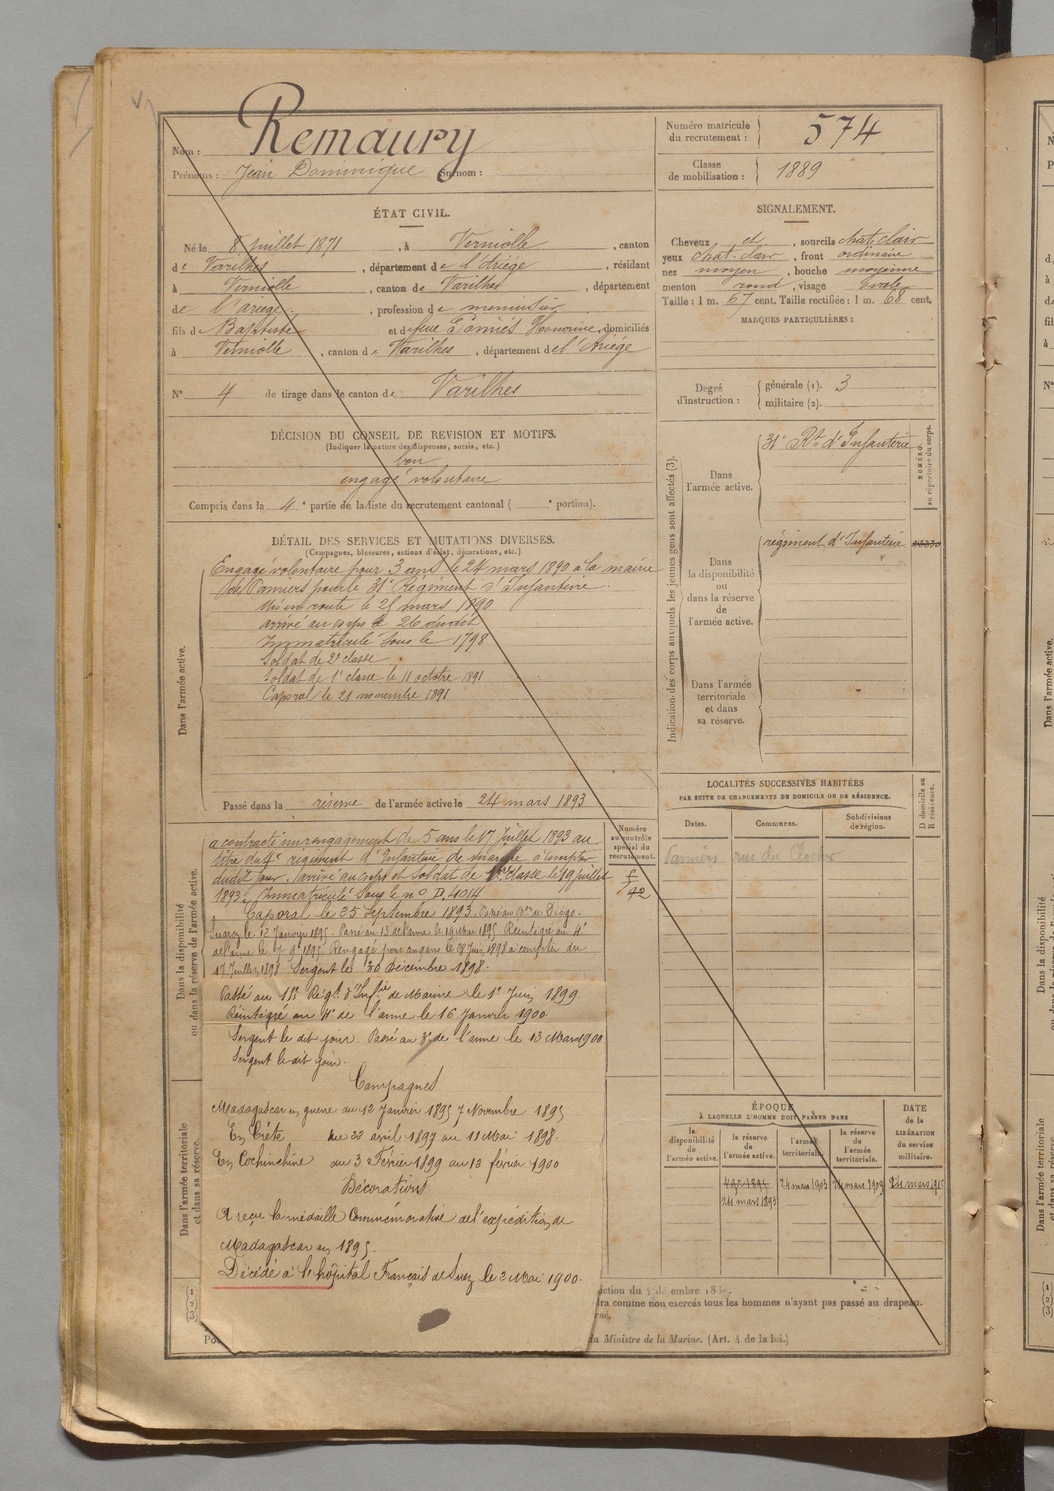 Nom : Remaury
Prénoms : Jean Dominique Surnom :
Numéro matricule du recrutement : 574
Classe de mobilisation : 1889
ÉTAT CIVIL.
Né le 8 juillet 1871, à Verniolle, canton
de Varilhes, département de l'Ariège, résidant
à Verniolle, canton de Varilhes, département
de l'ariège, profession de menuisier
fils de Baptiste et de feue Honorine, domiciliés
à Verniolle, canton de Varilhes, département de l'Ariége
N° 4 de tirage dans le canton de Varilhes
DÉCISION DU CONSEIL DE REVISION ET MOTIFS.
(Indiquer la nature des dispenses, sursis, etc.)
bon
engagé volontaire
Compris dans la 4e partie de la liste du recrutement cantonal ( e portion).
DÉTAIL DES SERVICES ET MUTATIONS DIVERSES.
(Campagnes, blessures, actions d'éclat, décorations, etc.)
Dans l'armée active.
Engagé volontaire pour 3 ans le 24 mars 1890 à la mairie
de Pamiers pour le 31e Régiment d'Infanterie.
mis en route le 25 mars 1890
arrivé au corps le 26 dudit
Immatriculé sous le 1798
Soldat de 2e classe
Soldat de 1e classe le 11 octobre 1891
Caporal le 21 novembre 1891
Passé dans la réserve de l'armée active le 24 mars 1893
Dans la disponibilité ou dans la réserve de l'armée active.
a contracté un rengagement de 5 ans le 17 Juillet 1893 au
titre du 4e régiment d'Infanterie de marine à compter
dudit jour. Arrivé au corps et Soldat de classe le 19 juillet
1893. Immatriculé sous le n° D.4014
Caporal le 25 septembre 1893. Passé au de Diego-
Suarez le 12 Janvier 1895. Passé au 13 de l'arme le 16 Mai 1895 Réintégré au 4e
de l'arme le 9bre 1895 Rengagé pour cinq ans le 28 Juin 1898 à compter du
17 Juillet 1898 Sergent le 30 Décembre 1898.
Passé au 11e Régt. d'Infie de Marine le 1er Juin 1899
Réintégré au 4e de l'arme le 16 Janvier 1900
Sergent le dit jour. Passé au 3e de l'arme le 13 Mars 1900
Sergent le dit jour.
Campagnes
Madagascar en guerre du 12 Janvier 1895 7 Novembre 1895
En Crète du 22 avril 1897 au 11 Mai 1898.
En Cochinchine du 3 Février 1899 au 13 février 1900
Décorations
A reçu la médaille Commémorative de l'expédition de
Madagascar en 1895.
Décédé à l'hôpital Français de Suez le 2 Mai 1900.
Dans l'armée territoriale et dans sa réserve.
Numéro au contrôle spécial du recrutement.
42
SIGNALEMENT.
Cheveux et, sourcils chat. clair
yeux chat. clair, front ordinaire
nez moyen, bouche moyenne
menton rond, visage ovale
Taille : 1 m. 67 cent. Taille rectifiée : 1 m. 68 cent.
MARQUES PARTICULIÈRES :
Degré d'instruction : générale (1). 3
militaire (2).
Indication des corps auxquels les jeunes gens sont affectés (3).
NUMÉRO au répertoire du corps.
Dans l'armée active. 31e Rt. d'Infanterie
Dans la disponibilité ou dans la réserve de l'armée active. régiment d'Infanterie
Dans l'armée territoriale et dans sa réserve.
LOCALITÉS SUCCESSIVES HABITÉES
PAR SUITE DE CHANGEMENTS DE DOMICILE OU DE RÉSIDENCE.
D domicile ou R résidence.
Dates. Communes. Subdivisions de région.
Pamiers rue du Clocher
ÉPOQUE
À LAQUELLE L'HOMME DOIT PASSER DANS
DATE de la LIBÉRATION du service militaire.
la disponibilité de l'armée active. la réserve de l'armée active. l'armée territoriale. la réserve de l'armée territoriale.
24 mars 1893 24 mars 1903 24 mars 1909 24 mars 1915
dra comme non exercés tous les hommes n'ayant pas passé au drapeau.
du Ministre de la Marine. (Art. 4 de la loi.)